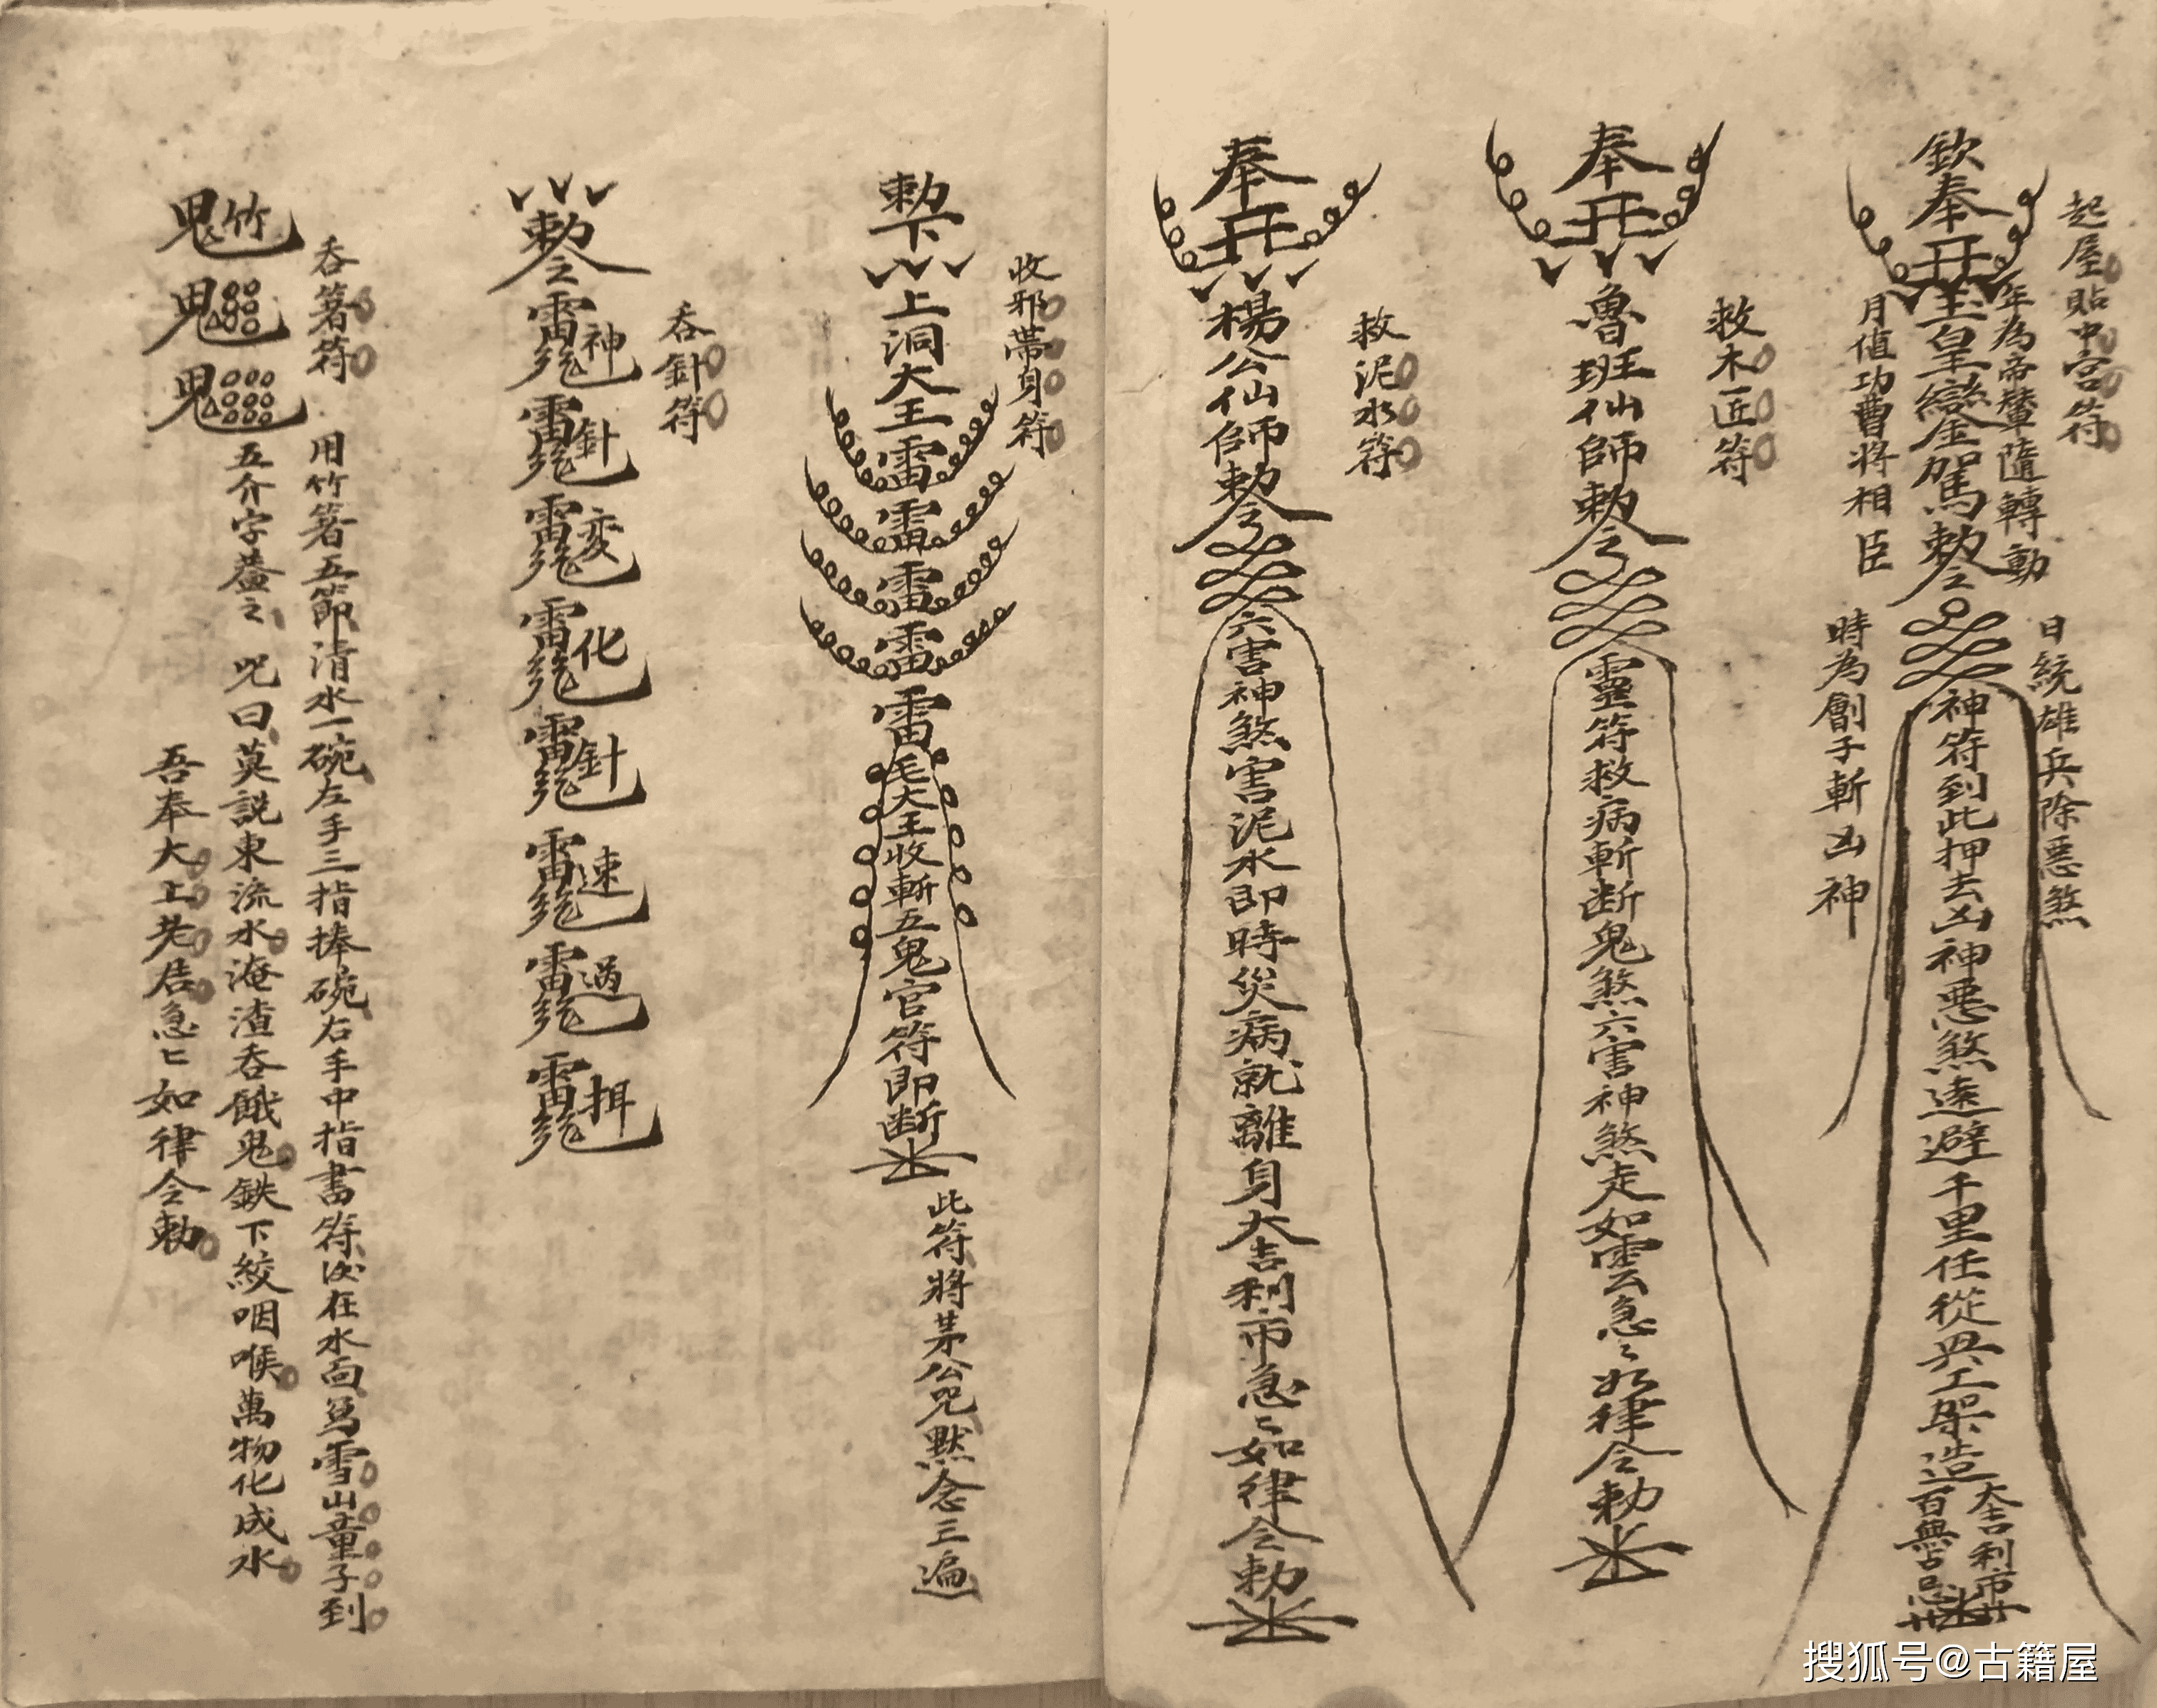 起屋貼中宮符
日統雄兵除惡煞
年為帝輦隨轉動
欽奉
玉皇鑾駕勅令
神符到此押去凶神惡煞遠避千里任從興工架造
大吉利市
百無占忌
月值功曹將相臣
時為劊子斬凶神
救木匠符
奉
魯班仙師勅令
靈符救病斬断鬼煞六害神煞走如雲急〻如律令勅
救泥水符
奉
楊公仙師勅令
六害神煞害泥水即時災病就離身大吉利市急〻如律令勅
收邪帶身符
勅下
上洞大王雷雷雷雷雷
毛大王收斬五鬼官符即断
此符將茅公咒默念三遍
吞針符
勅令
神針变化針速過
吞箸符
用竹箸五節清水一碗左手三指捧碗右手中指書符
在水面
雪山童子到
五介字蓋之
咒曰莫説東流水淹渣吞餓鬼鉄下絞咽喉萬物化成水
吾奉大上老君急〻如律令勅
搜狐号@古籍屋